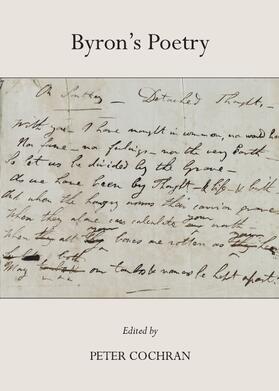 Byron's Poetry
On Southey — Detached Thoughts —
With you I have nought in common, nor would h
Nor fame — nor feelings — nor the very Earth
So let us be divided by the Grave —
As we have been by Thought — & life — &
And when the hungry worms their carrion
When they alone can calculate your worth —
When they your bones are rotten as
both
May our tombs be kept apart
Edited by
PETER COCHRAN